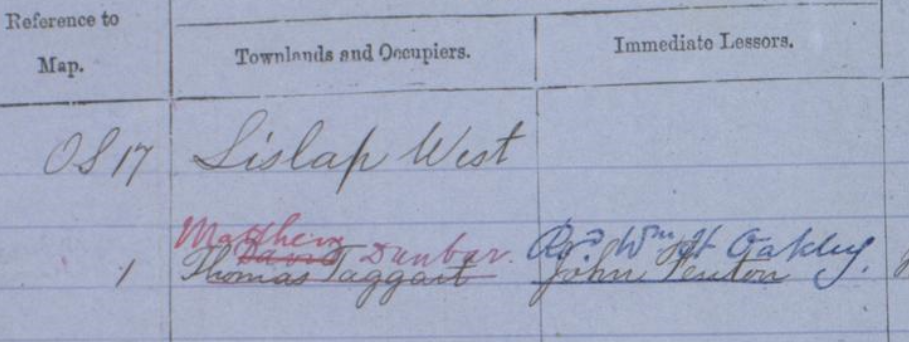 Reference to
Map.
Townlands and Occupiers.
Immediate Lessors.
OS 17 Lislap West
Matthew Dunbar. Wm Oakley.
David
1 Thomas Taggart John Fenton